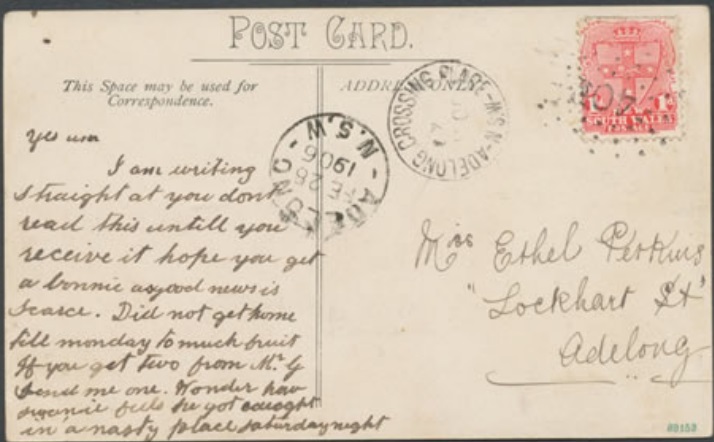 POST CARD.
This Space may be used for
Correspondence.
ADDRESS ONLY.
Yes um
I am writing
straight at you dont
read this untill you
receive it hope you get
a bonnie as good news is
scarce. Did not get home
till monday to much fruit
If you get two from Mr. G
send me one. Wonder how
feels he got caught
in a nasty place saturday night
ADELONG - N.S.W.
FE 26
1906
ADELONG CROSSING PLACE - N.S.W
1d 1d
SOUTH WALES
POSTAGE
Miss Ethel Perkins
"Lockhart St"
Adelong
89153